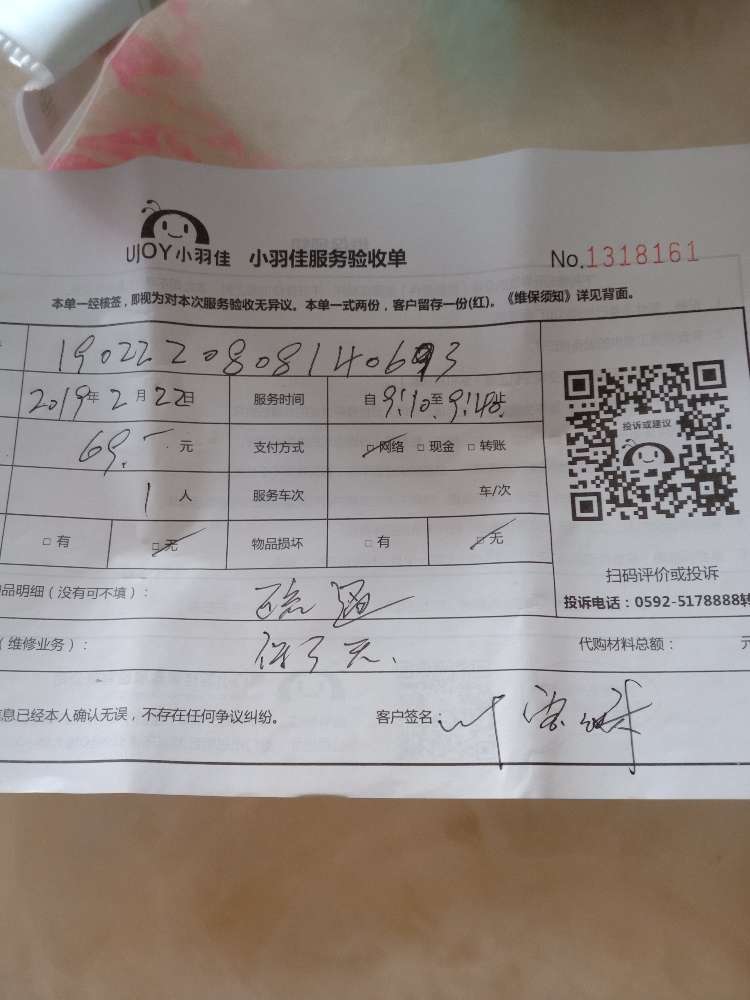 UJOY小羽佳 小羽佳服务验收单 No.1318161
本单一经核签，即视为对本次服务验收无异议。本单一式两份，客户留存一份(红)。《维保须知》详见背面。
2019年2月22日 服务时间 自9:10至9:40止
投诉或建议
69.- 元 支付方式 □网络 □现金 □转账
1人 服务车次 车/次
□有 □无 物品损坏 □有 □无
扫码评价或投诉
品明细（没有可不填）：
投诉电话：0592-5178888转
（维修业务）： 代购材料总额： 元
信息已经本人确认无误，不存在任何争议纠纷。 客户签名：